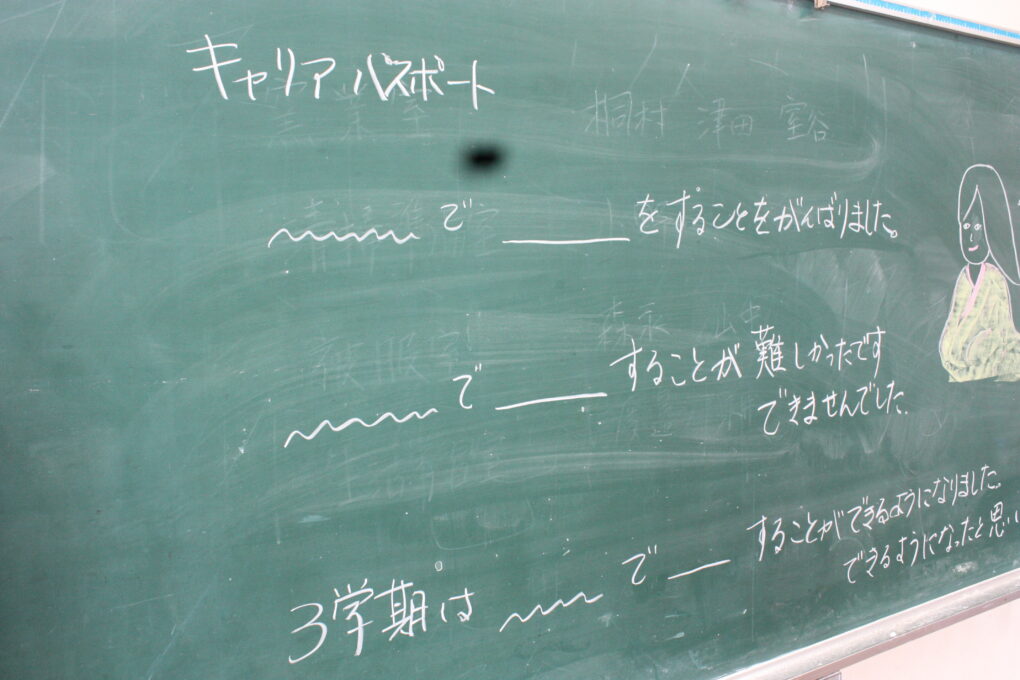 キャリアパスポート
桐村 津田 室谷
〜〜〜で＿＿＿をすることをがんばりました。
森永 山中
〜〜〜で＿＿＿することが難しかったです
できませんでした。
3学期は〜〜〜で＿することができるようになりました。
できるようになったと思い